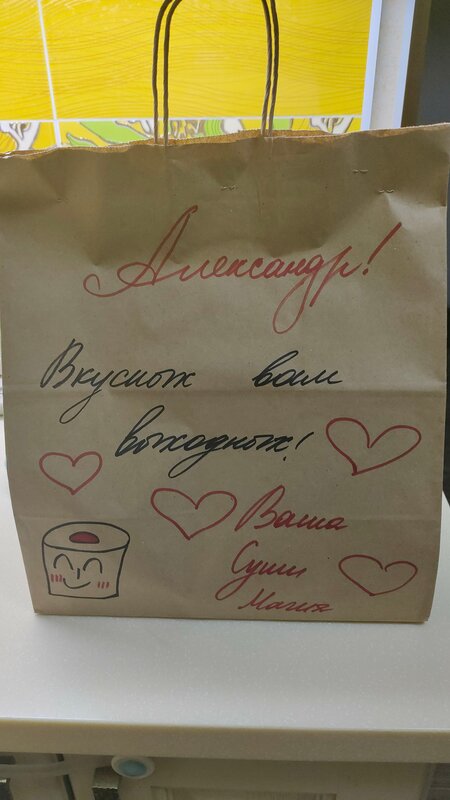 Александр!
Вкусных вам
выходных!
Ваша
Суши
Магия